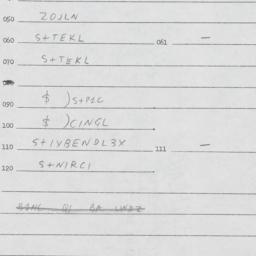 050 ZOJLN
060 S+TEKL 061 —
070 S+TEKL
090 $ )S+P1C
100 $ )CINGL
110 S+1VBENDL3X 111 —
120 S+NIRCI